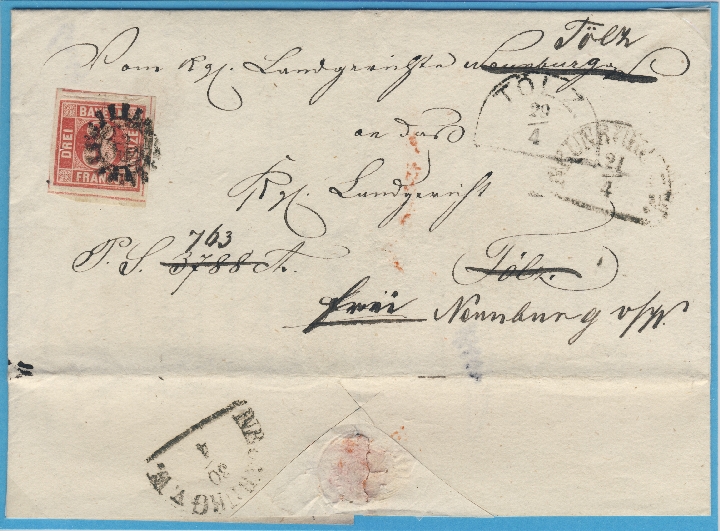 Tölz
Vom Kgl. Landgerichte Neunburg
TÖLZ
29
4
BAYERN
DREI
FRANCO
an das
21
4
Kgl. Landgericht
763
P. S. 3788
Tölz.
frei Neunburg v/W.
NEUNBURG V.W.
30
4